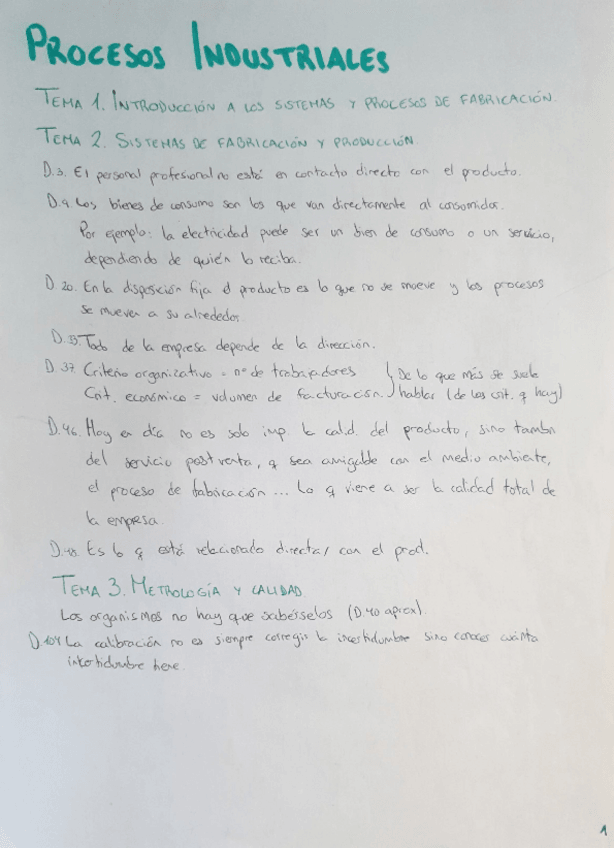 PROCESOS INDUSTRIALES
TEMA 1. INTRODUCCIÓN A LOS SISTEMAS Y PROCESOS DE FABRICACIÓN.
TEMA 2. SISTEMAS DE FABRICACIÓN Y PRODUCCIÓN
D.3. El personal profesional no está en contacto directo con el producto.
D.9. Los bienes de consumo son los que van directamente al consumidor.
Por ejemplo: la electricidad puede ser un bien de consumo o un servicio,
dependiendo de quién lo reciba.
D.20. En la disposición fija el producto es lo que no se mueve y los procesos
se mueven a su alrededor.
D.33. Todo de la empresa depende de la dirección.
D.37. Criterio organizativo = nº de trabajadores } De lo que más se suele
Crit. económico = volumen de facturación. } hablar (de los crit. q hay)
D.46. Hoy en día no es solo imp. la calid. del producto, sino tambn
del servicio postventa, q sea amigable con el medio ambiente,
el proceso de fabricación... Lo q viene a ser la calidad total de
la empresa.
D.48. Es lo q está relacionado directa/ con el prod.
TEMA 3. METROLOGÍA Y CALIDAD.
Los organismos no hay que sabérselos (D.40 aprox).
D.104 La calibración no es siempre corregir la incertidumbre sino conocer cuánta
incertidumbre tiene.
1